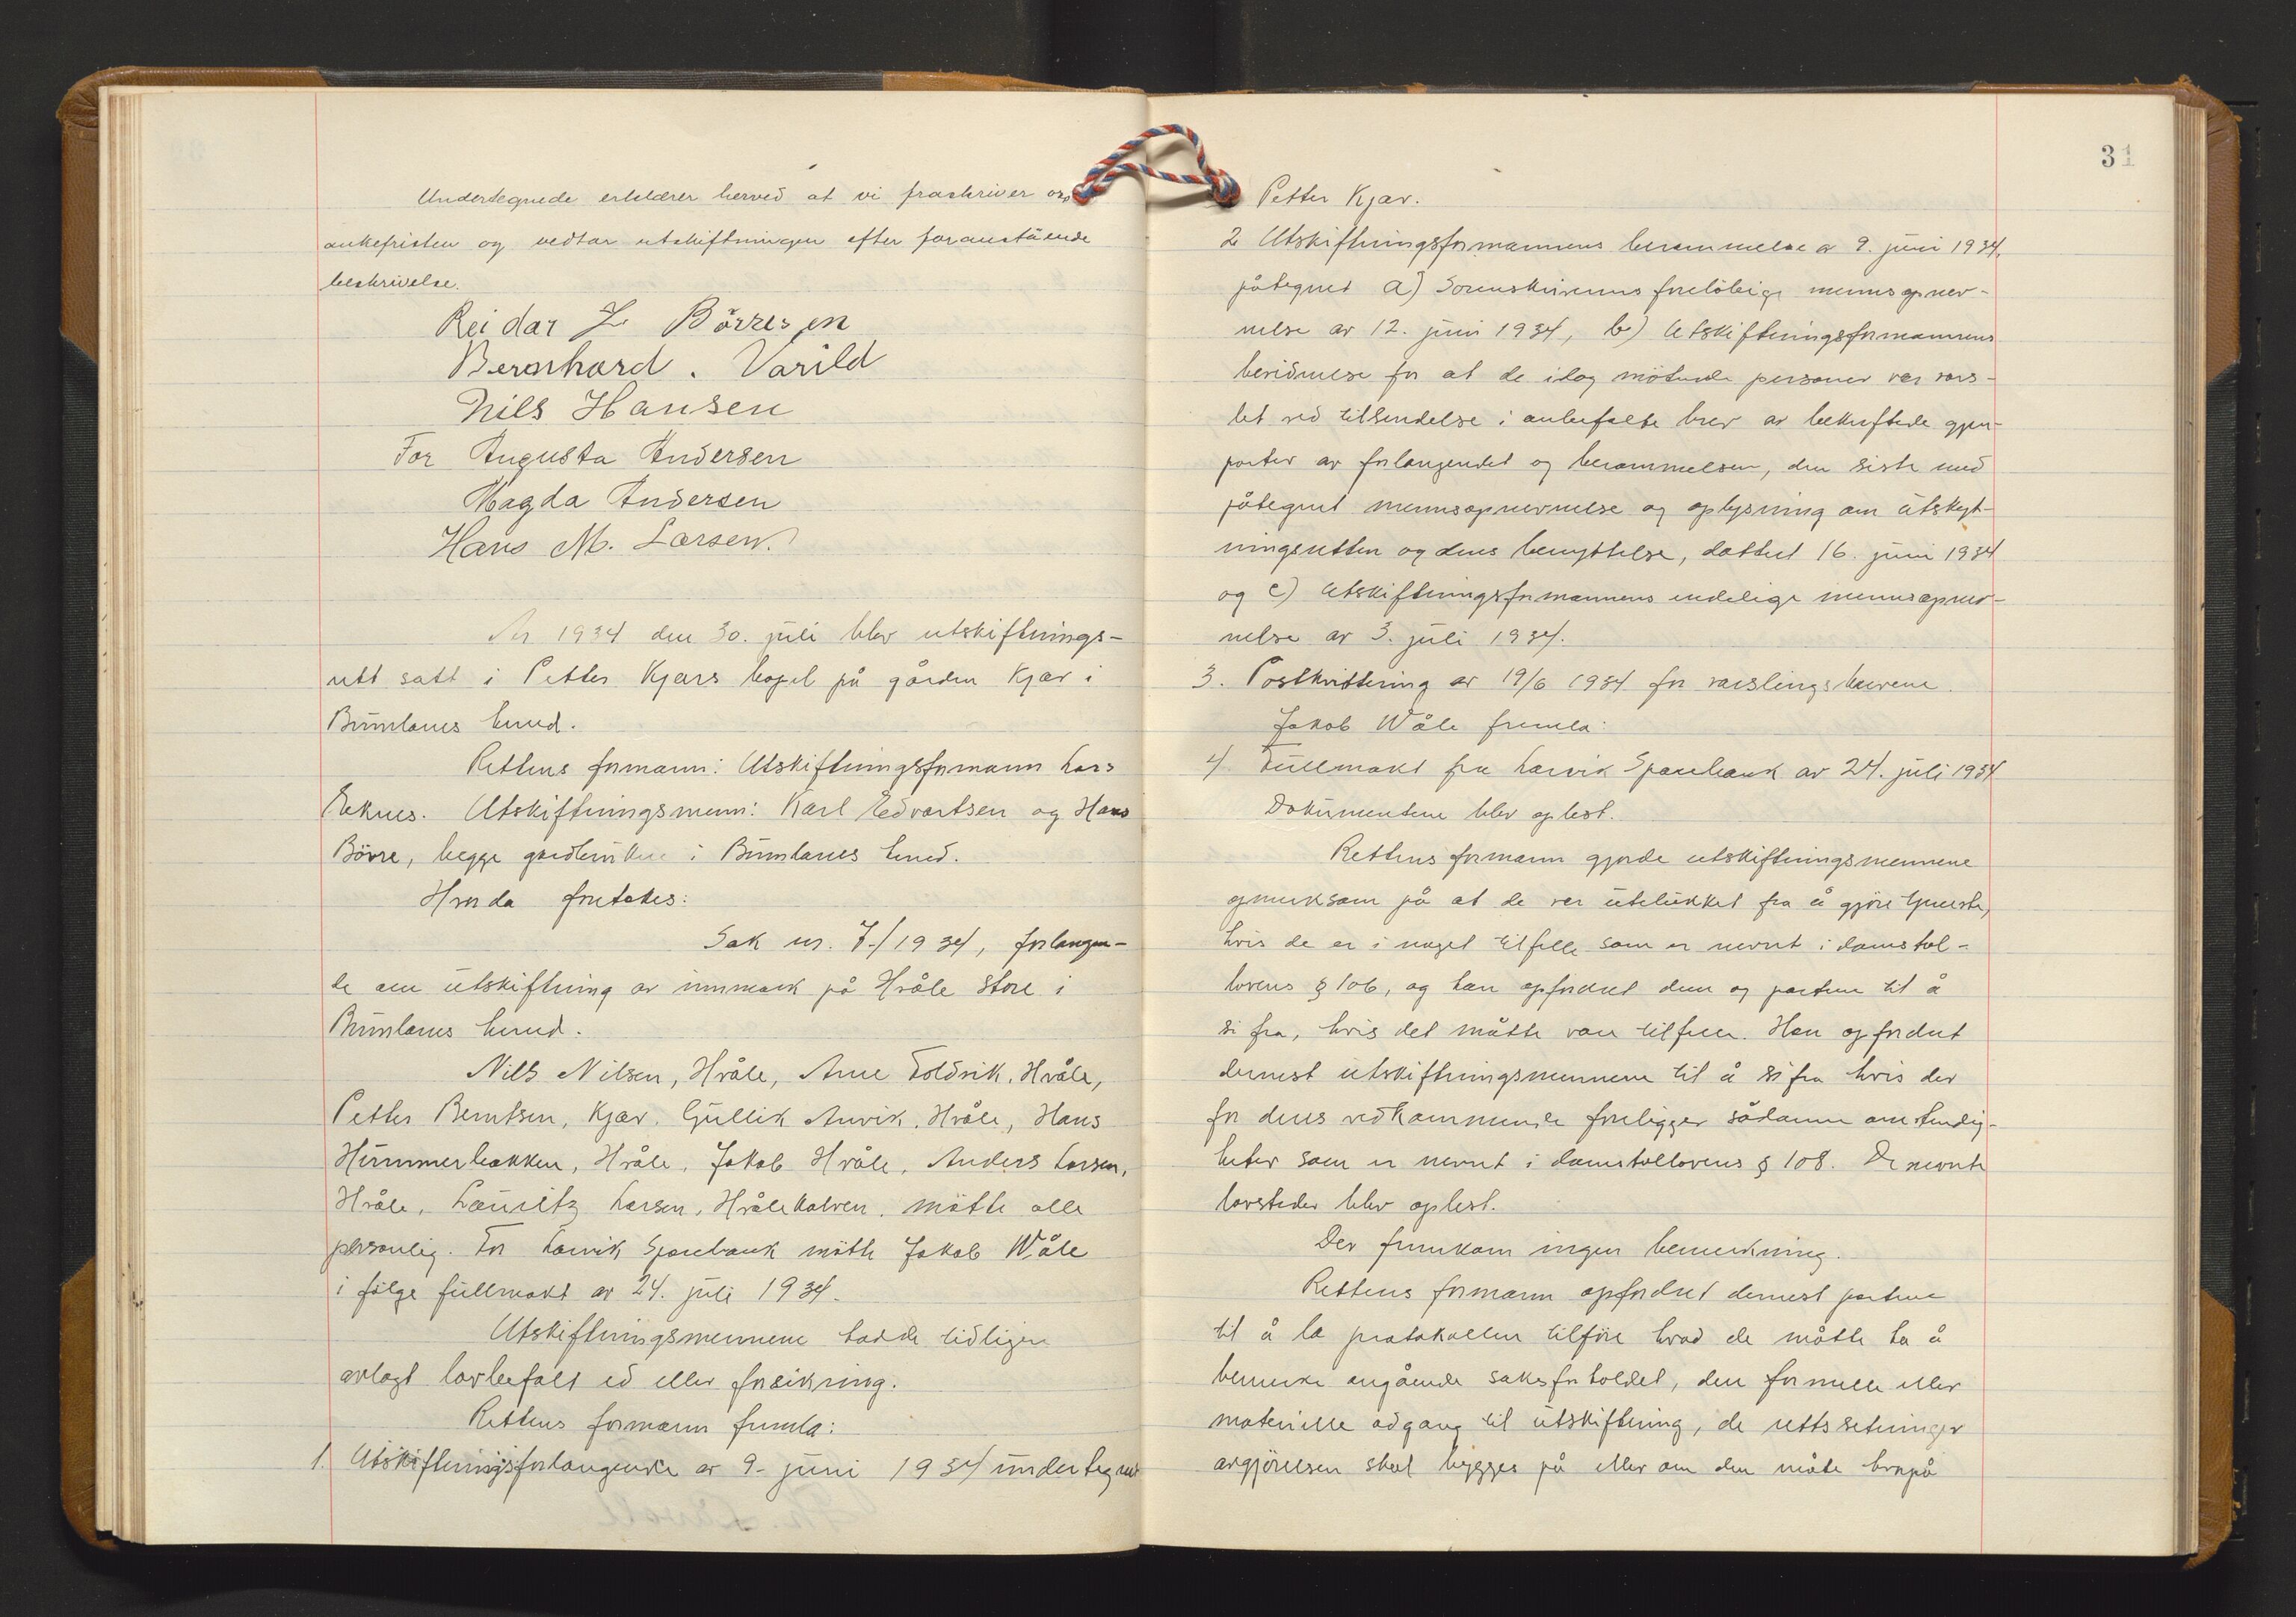 Undertegnede erklærer herved at vi fraskriver oss
ankefristen og vedtar utskiftningen efter foranstående
beskrivelse.
Reidar L Börresen
Bernhard. Varild
Nils Hansen
For Augusta Andersen
Magda Andersen
Hans M. Larsen.
År 1934 den 30. juli blev utskiftnings-
rett satt i Petter Kjærs bopel på gården Kjær i
Brunlanes herred.
Rettens formann: Utskiftningsformann Lars
Eeknes. Utskiftningsmenn: Karl Edvartsen og Hans
Bövre, begge gardbrukere i Brunlanes herred.
Hvorda foretokes:
Sak nr. 7/1934, forlangen-
de om utskiftning av innmark på Hvåle store i
Brunlanes herred.
Nils Nilsen, Hvåle, Arne Foldvik, Hvåle,
Petter Berntsen, Kjær, Gullik Anvik, Hvåle, Hans
Hummerbakken, Hvåle, Jakob Hvåle, Anders Larsen,
Hvåle, Lauritz Larsen, Hvålekalven, mötte alle
personlig. For Larvik Sparebank mötte Jakob Wåle
i fölge fullmakt av 24. juli 1934.
Utskiftningsmennene hadde tidligere
avlagt lovbefalt ed eller forsikring.
Rettens formann fremla:
1. Utskiftningsforlangende av 9. juni 1934 undertegnet
31
Petter Kjær.
2 Utskiftningsformannens berammelse av 9. juni 1934,
påtegnet a) Sorenskriverens forelöbige mennsopnev-
nelse av 12. juni 1934, b) Utskiftningsformannens
bevidnelse for at de idag mötende personer var vars-
let ved tilsendelse i anbefalte brev av bekreftede gjen-
parter av forlangendet og berammelsen, den siste med
påtegnet mennsopnevnelse og oplysning om utskyt-
ningsretten og dens benyttelse, datert 16. juni 1934
og c) Utskiftningsformannens endelige mennsopnev-
nelse av 3. juli 1934.
3. Postkvittering av 19/6 1934 for varslingsbrevene.
Jakob Wåle fremla:
4 Fullmakt fra Larvik Sparebank av 24. juli 1934
Dokumentene blev oplest.
Rettens formann gjorde utskiftningsmennene
opmerksom på at de var utelukket fra å gjöre tjeneste,
hvis de er i noget tilfelle som er nevnt i domstol-
lovens § 106, og han opfordret dem og partene til å
si fra, hvis det måtte være tilfelle. Han opfordret
dernest utskiftningsmennene til å si fra hvis der
for deres vedkommende foreligger sådanne omstendig-
heter som er nevnt i domstollovens § 108. De nevnte
lovsteder blev oplest.
Der fremkom ingen bemerkning.
Rettens formann opfordret dernest partene
til å la protokollen tilföre hvad de måtte ha å
bemerke angående saksforholdet, den formelle eller
materielle adgang til utskiftning, de rettssetninger
avgjörelsen skal bygges på eller om den måte hvorpå